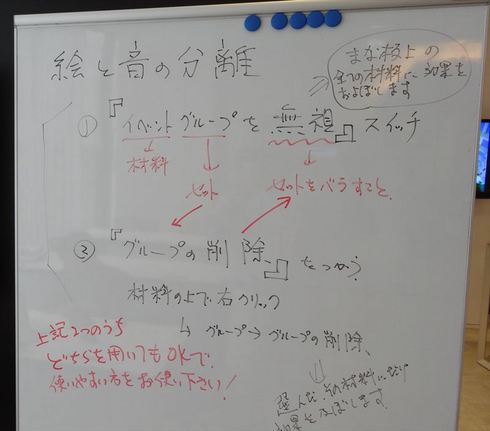 絵と音の分離
まな板上の
全ての材料に効果を
およぼします
① 『イベントグループを無視』スイッチ
材料
セット
セットをバラすこと
③ 『グループの削除、』をつかう。
材料の上で右クリック
↳ グループ→グループの削除、
上記2つのうち
どちらを用いてもOKで、
使いやすい方をお使い下さい！
選んだ、その材料にだけ
効果を及ぼします